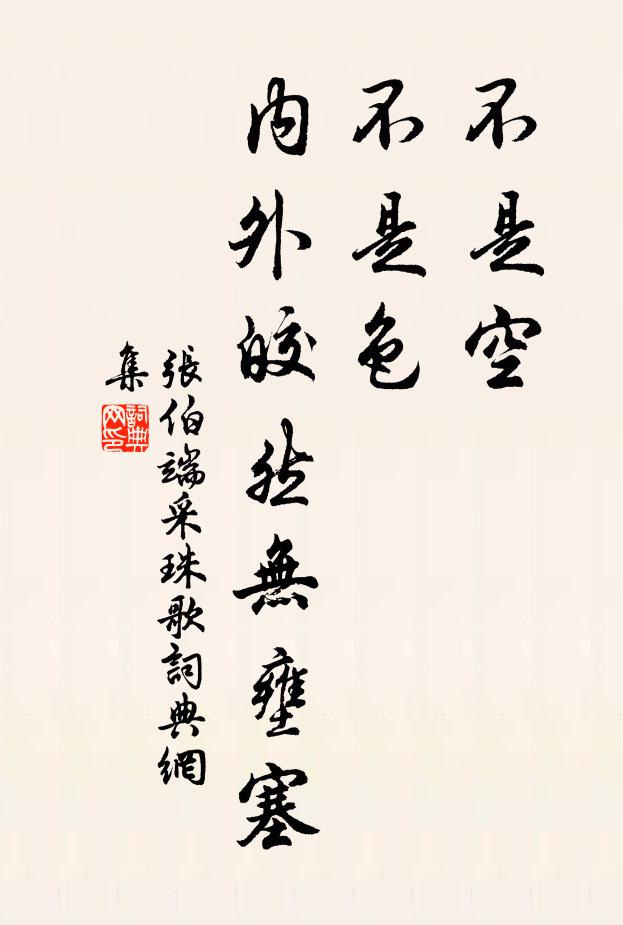 不是空
不是色
内外皎然無壅塞
張伯端采珠歌詞典網
集
詞典
网印